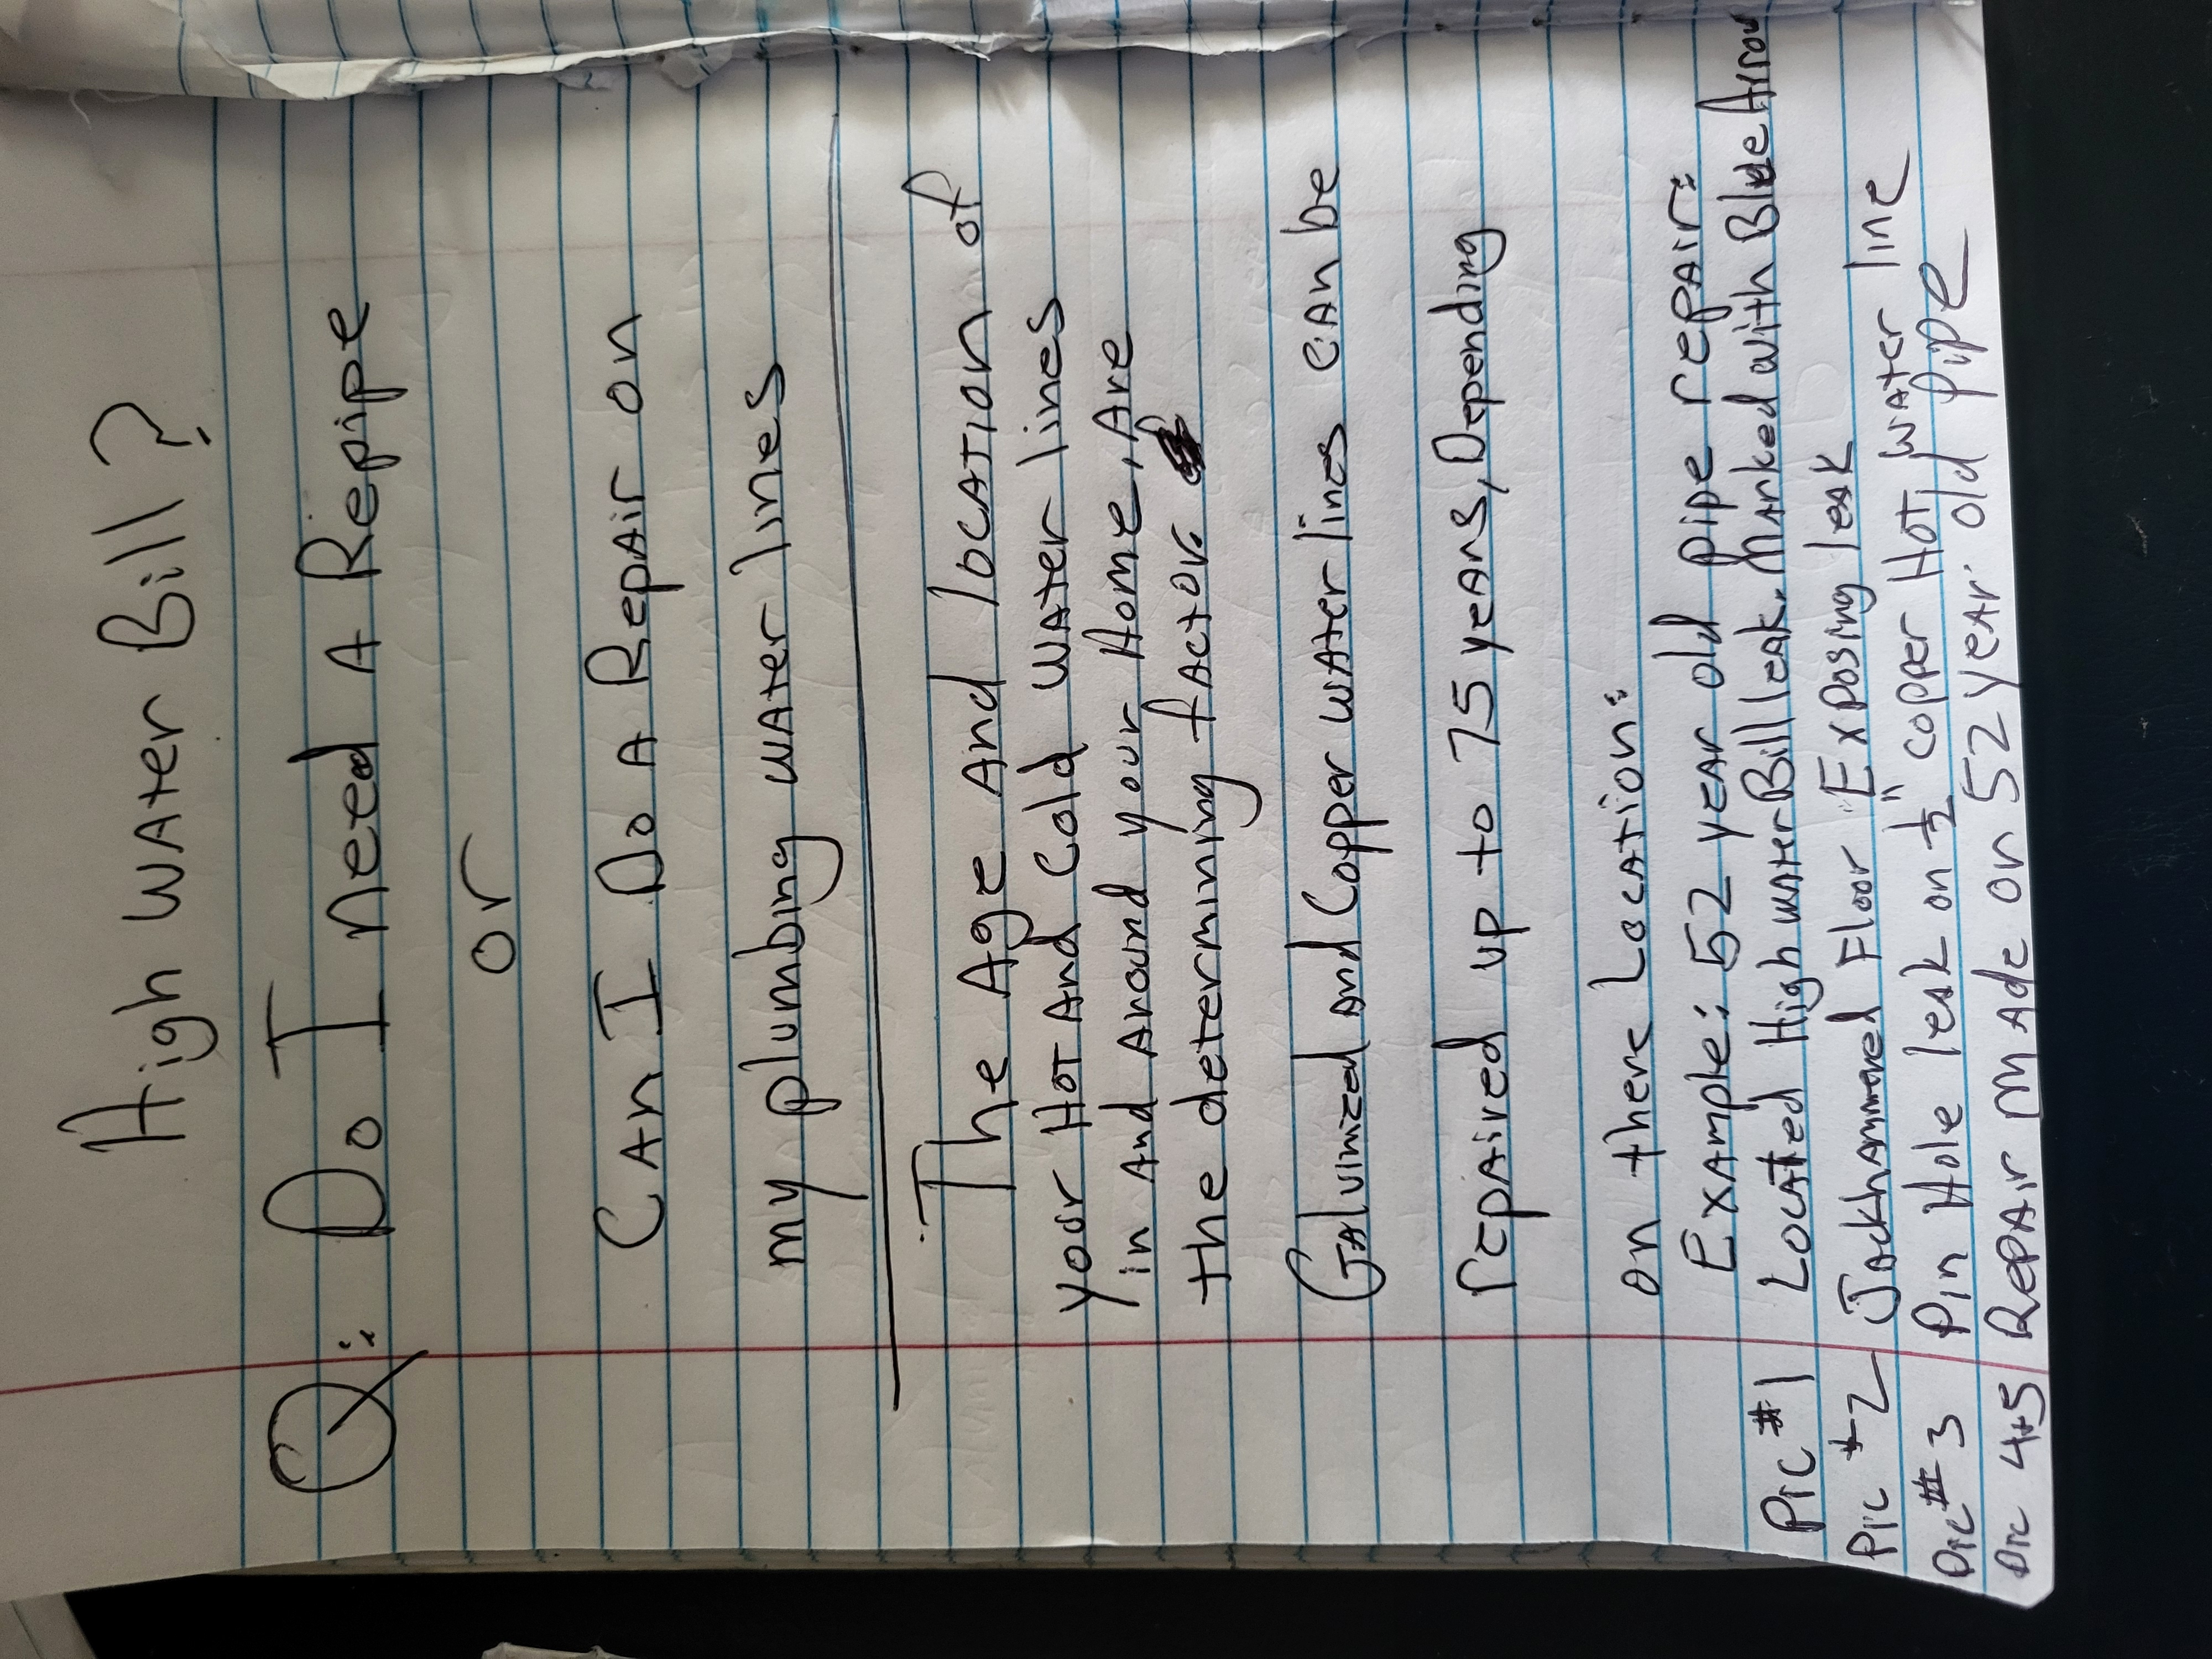 High water Bill?
Q: Do I need A Repipe
or
CAn I Do A Repair on
my plumbing water lines
The Age And location of
your Hot And Cold water lines
in And Around your Home, Are
the determining factor.
Galvinized and Copper water lines can be
repaired up to 75 years, Depending
on there Location:
Example: 52 year old pipe repair:
Pic #1 Located High water Bill leak. Marked with Blue Arrow
Pic #2 Jackhammored Floor Exposing leak
Pic #3 Pin Hole leak on 1/2" copper Hot water line
Pic 4+5 Repair made on 52 year old pipe